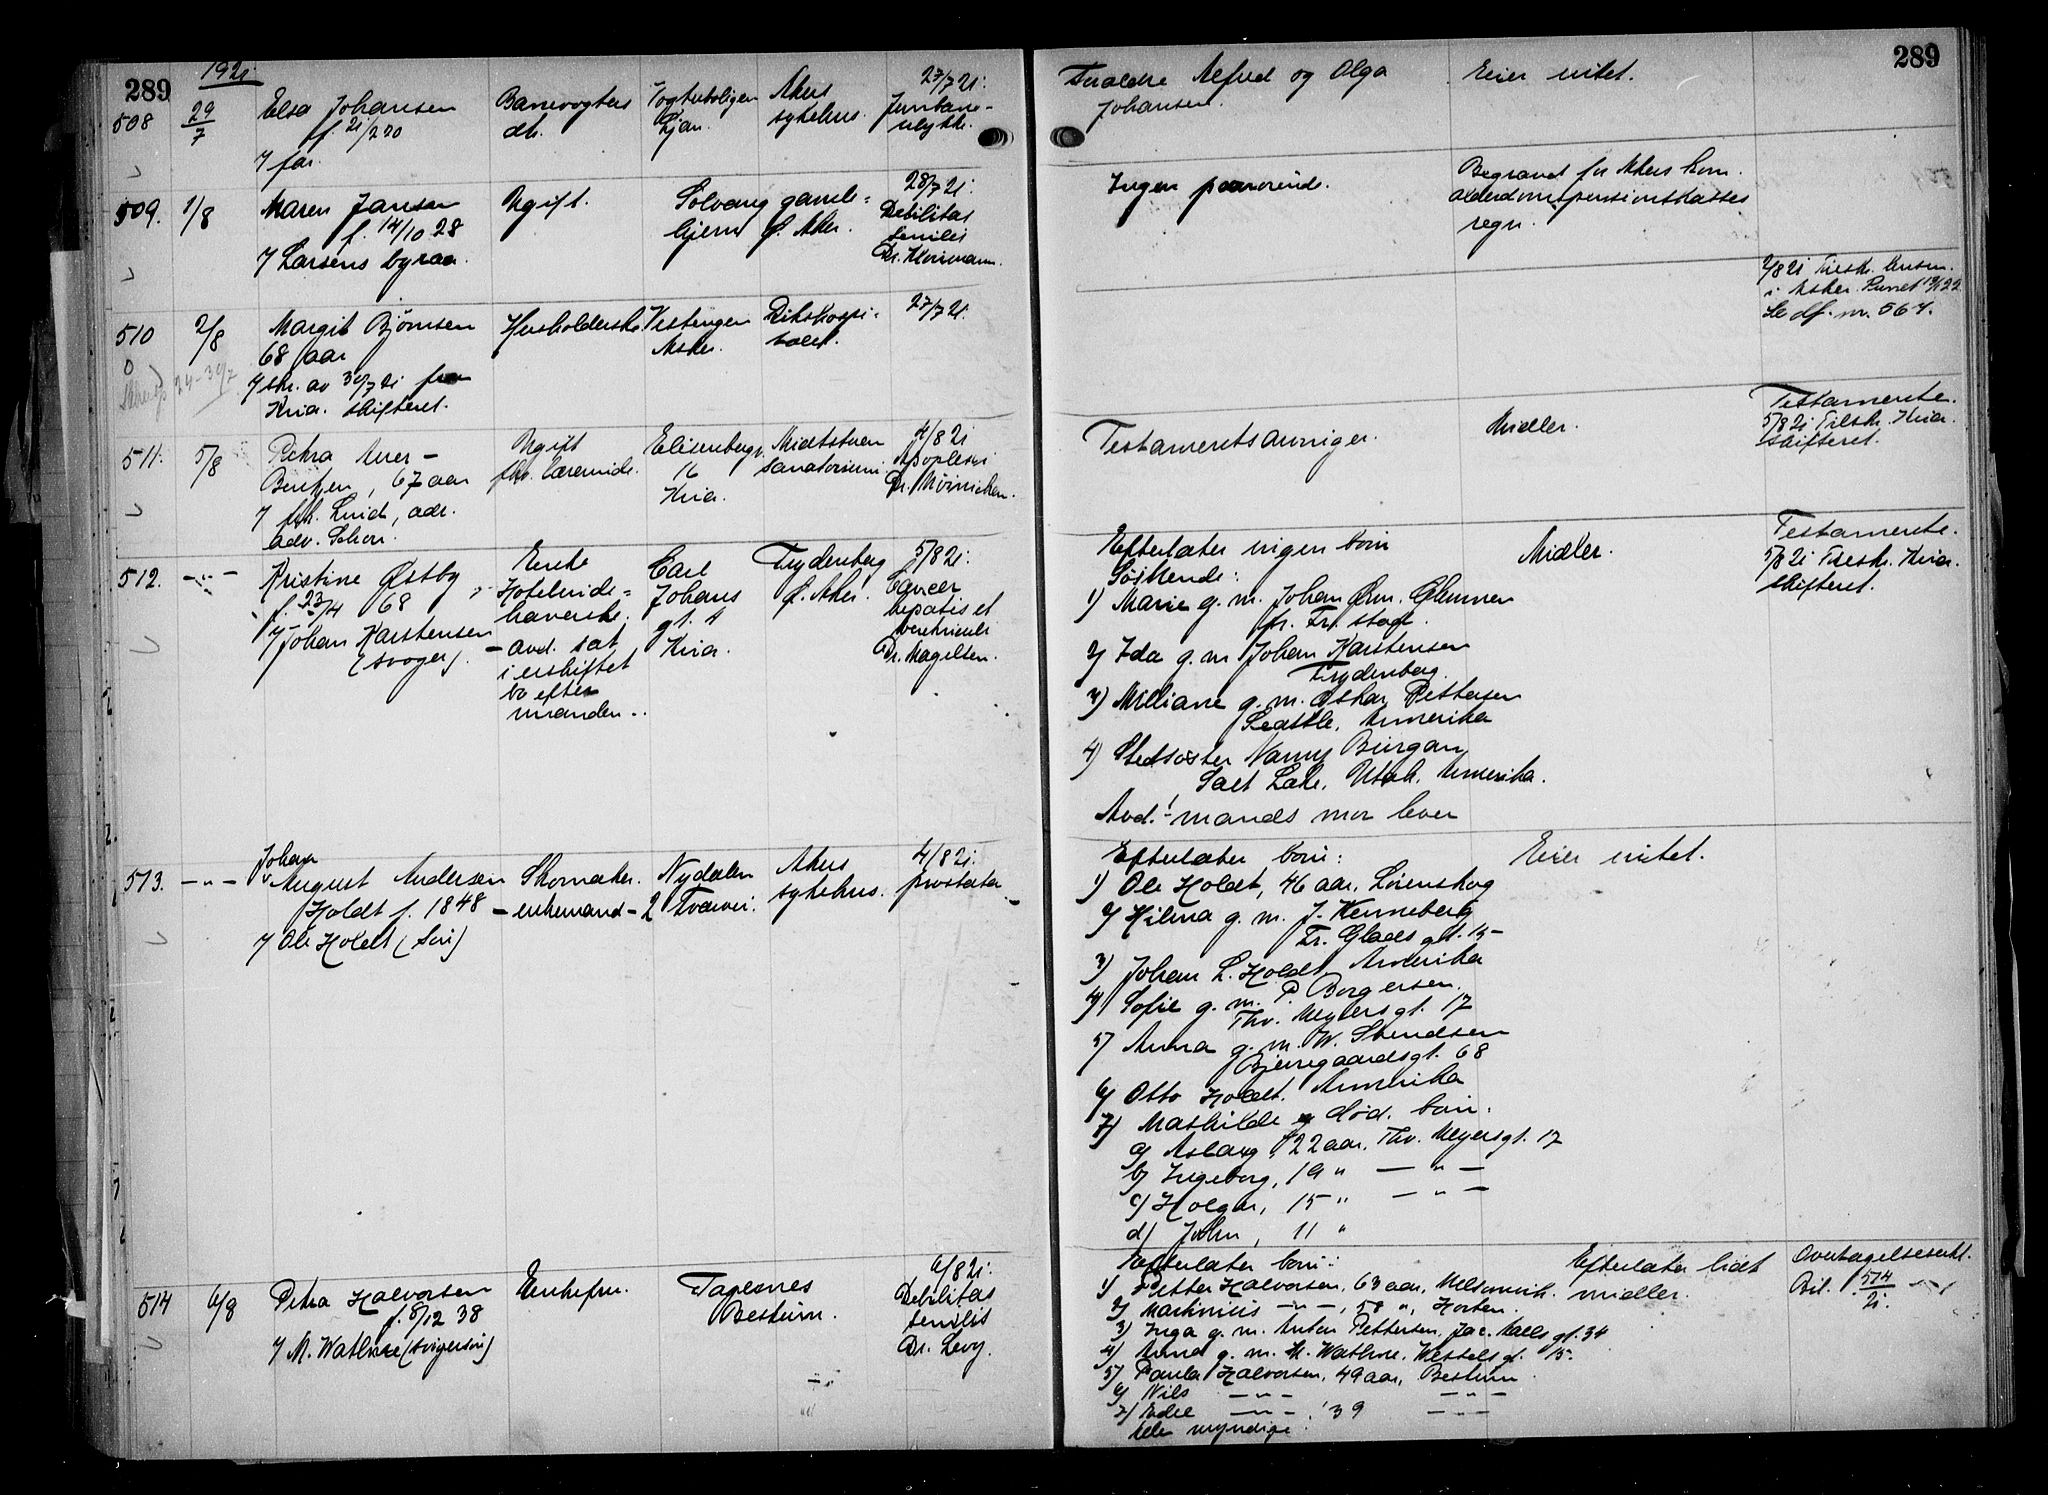 289
1921
508
29/7
Elsa Johansen
f. 21/2 20
Banevogters
dtr.
Vogterboligen
Ljan.
Akers
sykehus.
27/7 21.
Jernbane-
ulykke.
7 far.
509.
1/8
Maren Jansen
f. 14/10 28
7 Larsens byraa.
Ugift.
Solvang gamle-
hjem Ø. Aker.
28/7 21.
Debilitas
senilis
510
2/8
Margit Bjørnsen
68 aar
7 skr. av 30/7 21 fra
Kria. skifteret.
24-30/7
Husholderske
Vestengen
Asker.
Rikshospi-
talet.
27/7 21.
511.
5/8
Petra Auer-
Berntzen, 67 aar
7 frk. Lund, adr.
adv. Schou.
Ugift
fhv. lærerinde.
Elisenbergv.
16
Kria.
Midtstuen
sanatorium.
4/8 21
Apoplexi
512.
-"-
Kristine Østby,
f. 23/4 68
7 Johan Karstensen
(svoger).
Enke
Hotelinde-
haverske.
- avd. sat
i uskiftet
bo efter
manden..
Carl
Johans
gt. 4
Kria.
Frydenberg
Ø. Aker.
5/8 21.
Cancer
hepatis et
ventriculi
Dr. Magelsen.
513.
-"-
Johan
August Andersen
Holdt f. 1848
7 Ole Holdt (søn)
Skomaker.
- enkemand -
Nydalen
2 Tværvei.
Akers
sykehus.
4/8 21.
prostata
514
6/8
Petra Halvorsen
f. 8/12 38
7 M. Wathne (svigersøn)
Enkefru.
Bestum.
6/8 21.
Debilitas
senilis
Dr. Levy.
289
Forældre Alfred og Olga
Johansen.
Eier intet.
Ingen paarørende.
Begravet for Akers kom.
alderdomspensionskasses
regn.
2/8 21 Tilskr. lensm.
i Asker. Svaret 12/1 22
Se df. nr. 564.
Testamentsarvinger.
Midler.
Testamente.
5/8 21 Tilskr. Kria.
skifteret.
Efterlater ingen barn
Søskende:
1) Marie g. m. Johan Chr. Glemmen
pr. Fr. stad.
2) Ida g. m. Johan Karstensen
Frydenberg.
3) Milliane g. m. Oskar Pettersen
Seattle, Amerika
4) Stedsøster Nanny Bingan
Salt Lake, Utah. Amerika.
Avd.! mands mor lever
Midler.
Testamente.
5/8 21 Tilskr. Kria.
skifteret.
Efterlater barn:
1) Ole Holdt, 46 aar, Lørenskog
2) Hilma g. m. J. Kenneberg
Fr. Glads gt. 15-
3) Johan L. Holdt, Amerika
4) Sofie g. m. P. Borgersen.
Thv. Meyersgt. 17
5) Anna g. m. W. Svendsen
Bjerregaardsgt. 68
6) Otto Holdt. Amerika
7) Mathilde død. barn:
a) Aslaug, 22 aar, Thv. Meyersgt. 17
b) Ingeborg, 19 " -"-
c) Holgar, 15 " -"-
d) John, 11 "
Eier intet.
Efterlater barn:
1) Petter Halvorsen, 63 aar, Melsomvik.
2) Martinius -"-, 58 ", Horten.
3) Inga g. m. Anton Pettersen, Jac. Aalls gt. 34
4) Anna g. m. M. Wathne, Wessels gt. 15.
5) Paula Halvorsen, 49 aar, Bestum
6) Nils -"- -"-
7) Edle -"-, 39 -"-
Alle myndige.
Efterlater lidt
midler.
Overtagelseserkl.
Bil. 514/21.